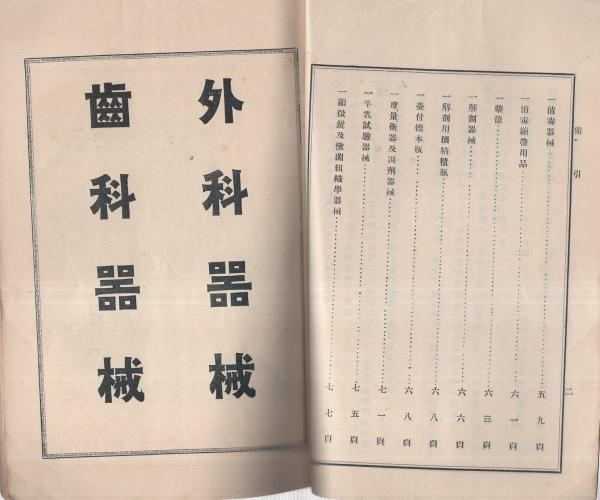 索引
一消毒器械 五九頁
一消毒繃帶用品 六一頁
一藥籠 六三頁
一解剖器械 六六頁
一解剖用酒精積瓶 六八頁
一臺付標本瓶 六八頁
一度量衡器及調劑器械 七一頁
一牛乳試驗器械 七五頁
一顯微鏡及黴菌組織學器械 七七頁
二
外科器械
齒科器械